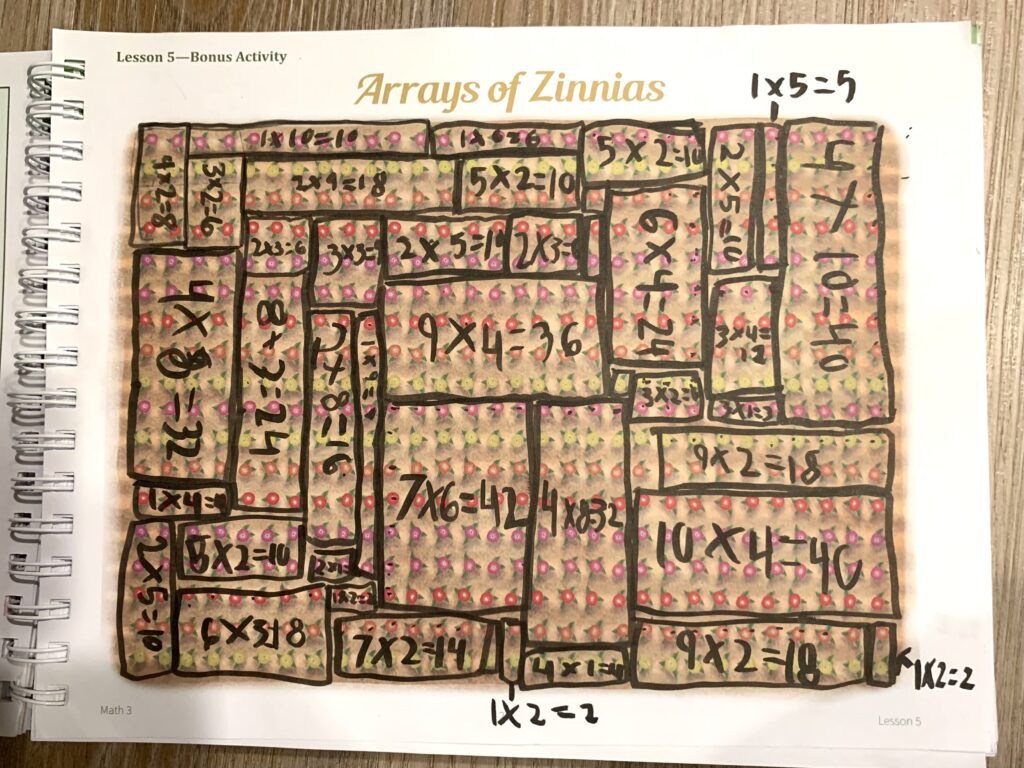 Lesson 5—Bonus Activity
Arrays of Zinnias
1x5=5
1x10=10
1x6=6
5x2=10
2x5=10
4x10=40
4x2=8
3x2=6
2x9=18
5x2=10
6x4=24
2x3=6
3x3=
2x5=10
2x3=6
4x8=32
8x3=24
2x8=16
9x4=36
3x4=12
3x2=6
3x1=3
9x2=18
7x6=42
4x832
10x4=40
1x4=4
2x5=10
5x2=10
1x2=2
6x318
7x2=14
4x1=4
9x2=18
1x2=2
1x2=2
Math 3
Lesson 5